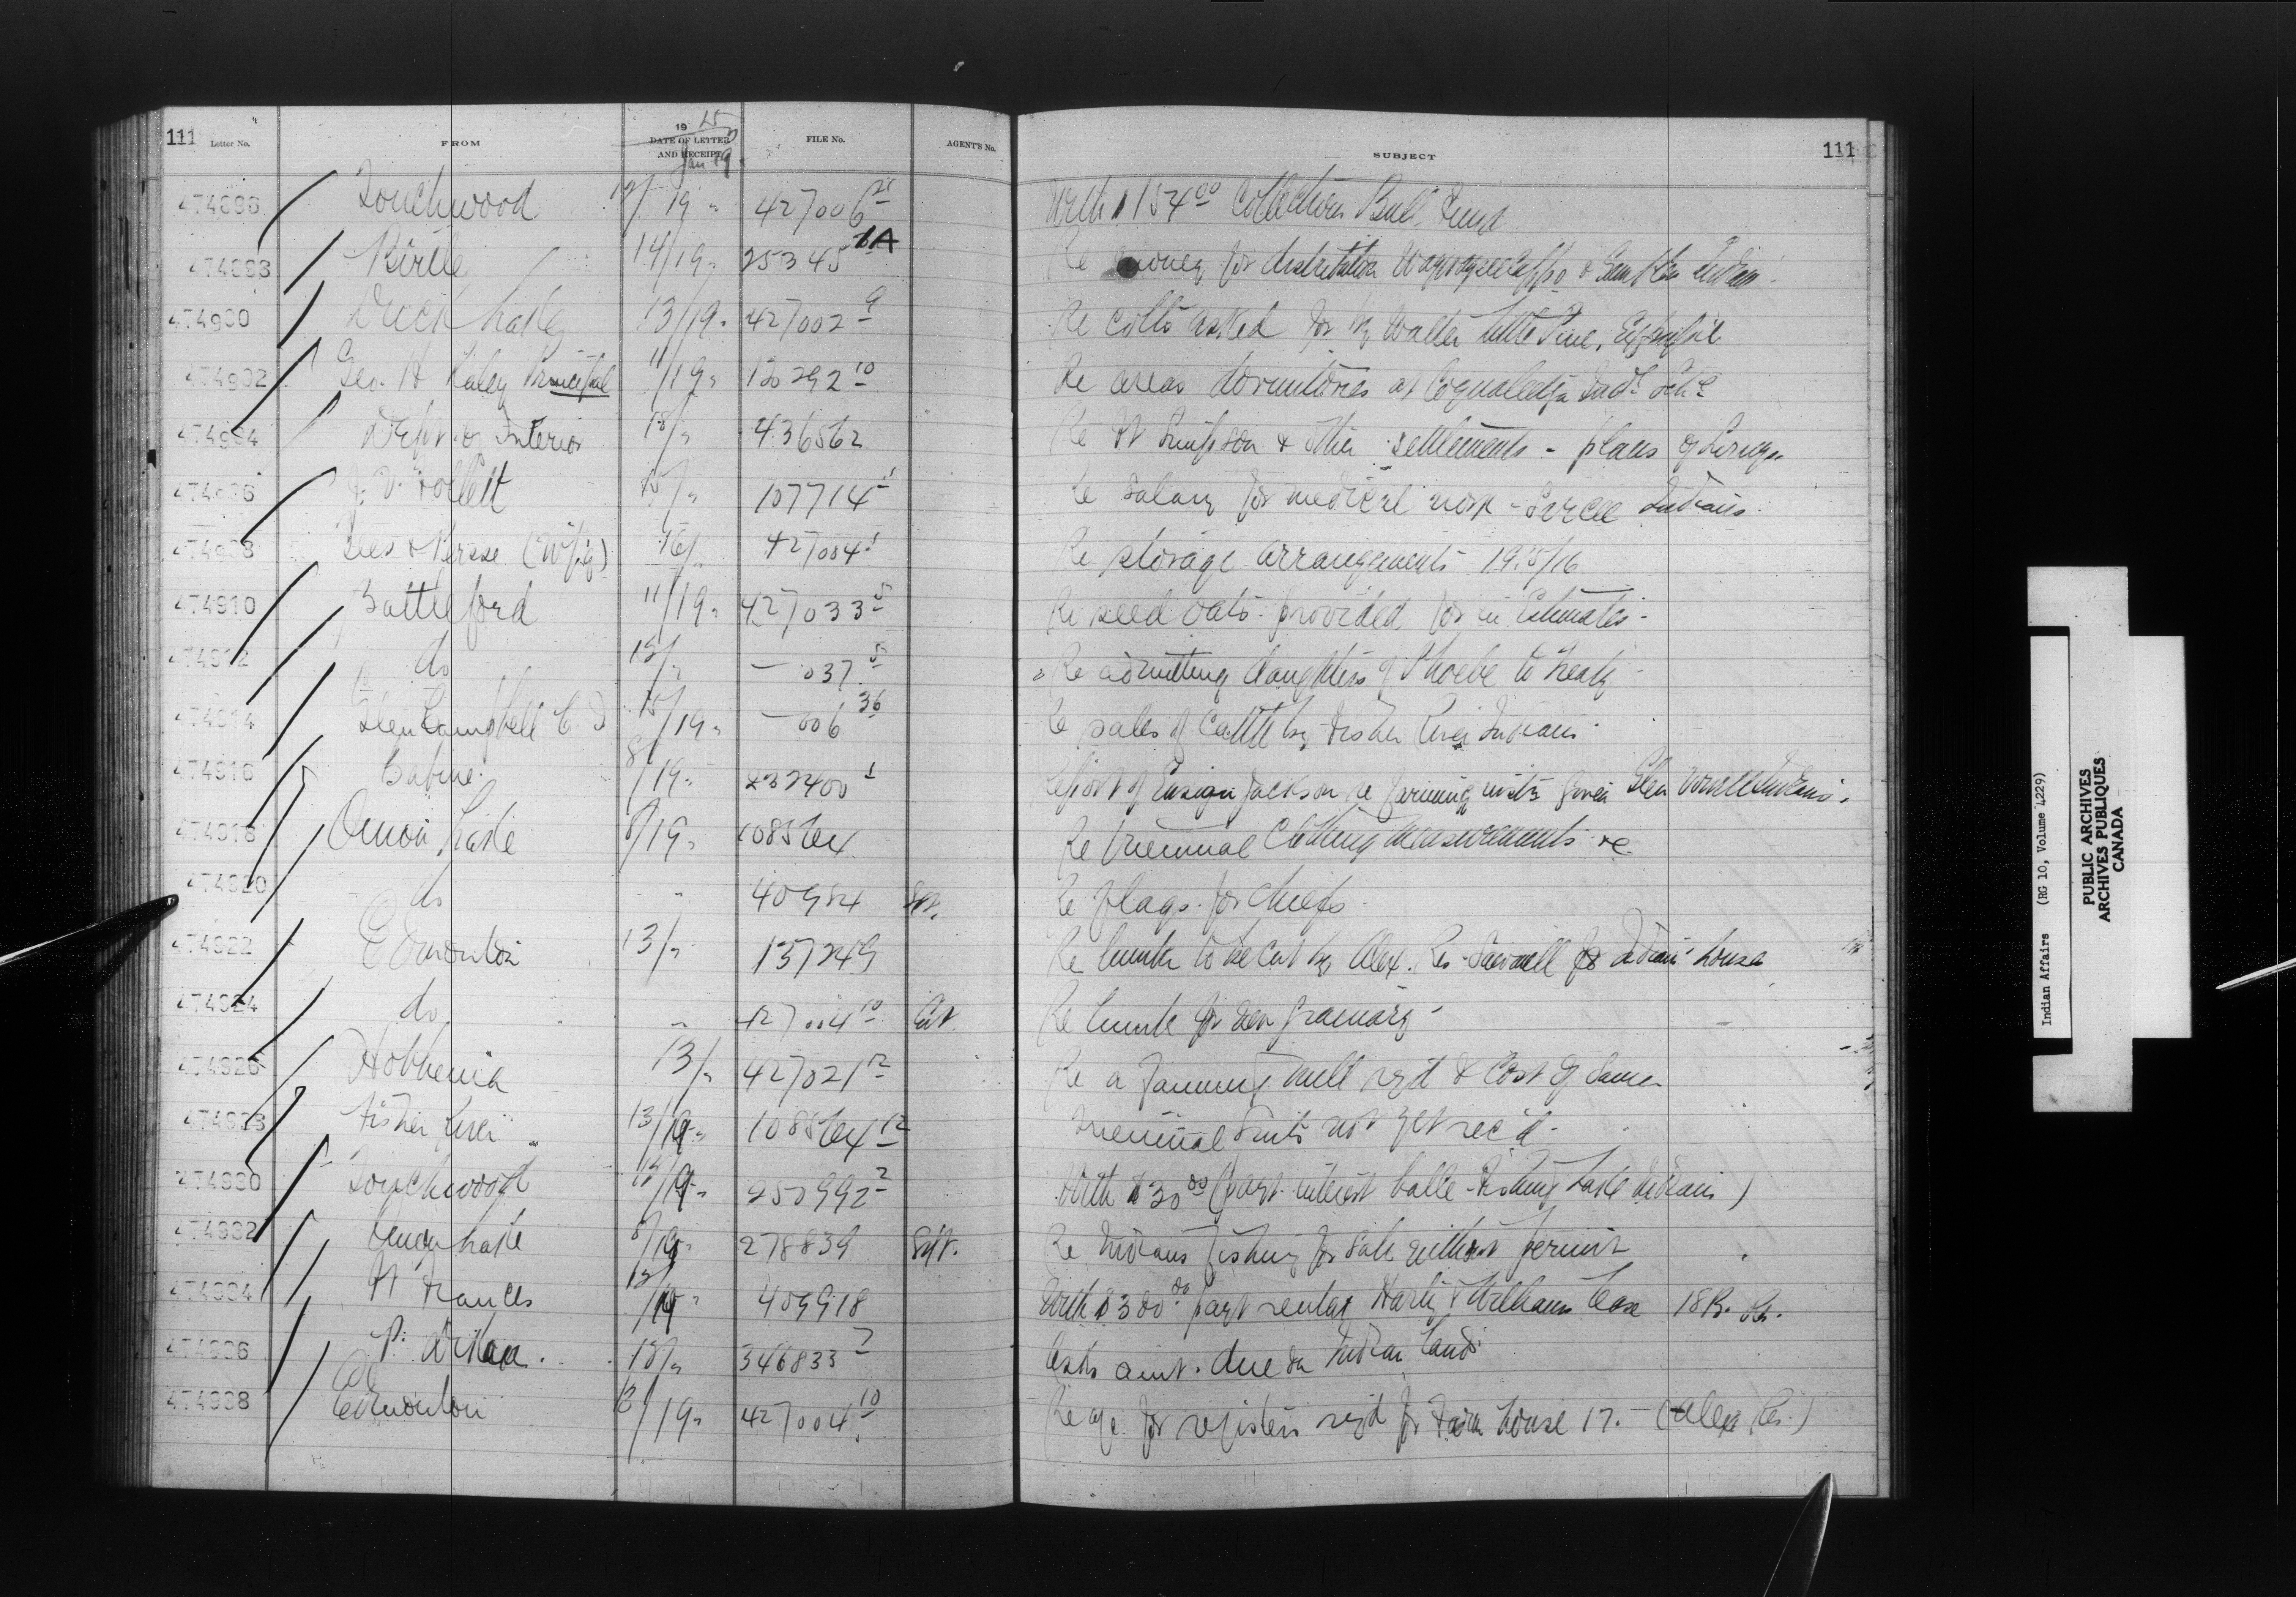 111 Letter No. FROM 19 15 DATE OF LETTER AND RECEIPT Jan 19 FILE No. AGENT'S No. SUBJECT 111
474896 Touchwood 12/19 " 427006 With $154.00 Collections Bull Fund
474898 Birtle 14/19 " 25345 1A Re money for distribution Waywayseecappo & Indians
474900 Duck Lake 13/19 " 427002 9 Re colts asked for by Walter Little Pine,
474902 Geo. H Raley Principal 11/19 " 130292 10 Re areas dormitories at Coqualeetza Indl Schl
474904 Dept. of Interior 18/" 436562 Re Ft Simpson & other settlements - plans of
474906 J. V. Follett 15/" 107714 1 Re salary for medical work - Sarcee Indians
474908 Lees & Persse (W'peg) 16/" 427004 1 Re storage arrangements 1915/16
474910 Battleford 11/19 " 427033 5 Re seed oats provided for in Estimates -
474912 do 12/" — 037 5 Re admitting daughters of Phoebe to Treaty
474914 Glen Campbell C. I 15/19 " — 006 36 Re sales of cattle by Fisher River Indians
474916 Babine 8/19 " 232400 1 Report of Ensign Jackson re farming Glen Vowell Indians.
474918 Onion Lake 8/19 " 108564 Re triennial clothing measurements re
474920 do " 40984 Re flags for chiefs
474922 Edmonton 13/" 137249 Re lumber to be cut by Alex. Res. Sawmill for Indian houses
474924 do " 427004 10 Re lumber for new granary
474926 Hobbema 13/" 427021 12 Re a fanning mill reqd & cost of same
474928 Fisher River 13/19 " 108564 12 Triennial suits not yet rec'd.
474930 Touchwood 12/19 " 250992 2 With $30.00 (part interest balle Fishing Lake Indians)
474932 Onion Lake 8/19 " 278839 Re Indians fishing for sale without permit
474934 Ft Frances 12/19 " 409918 With $300.00 part rental & Williams lease 18B.
474936 P. 18/" 346833 7 Asks amt. due on Indian Lands
474938 Edmonton 13/19 " 427004 10 Re for registers reqd for Farm House 17. - (Alex Res.)
Indian Affairs (RG 10, Volume 4229)
PUBLIC ARCHIVES
ARCHIVES PUBLIQUES
CANADA